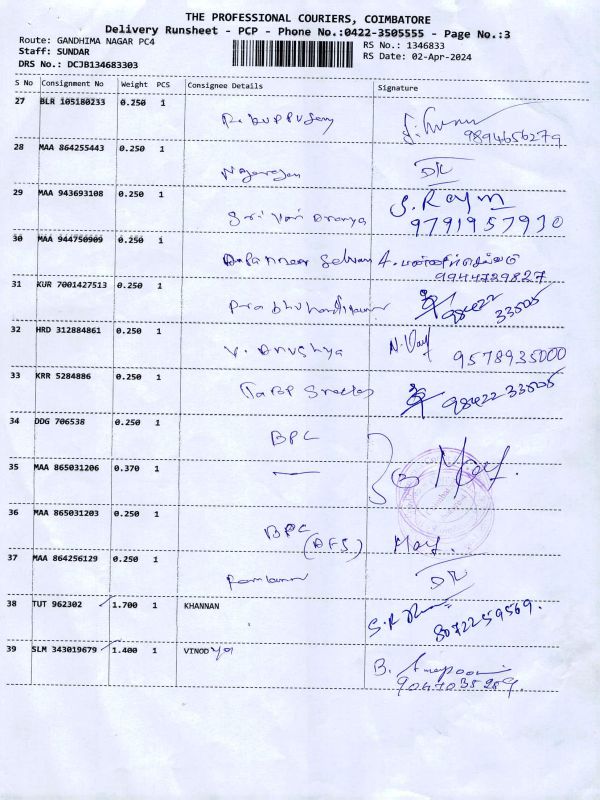 THE PROFESSIONAL COURIERS, COIMBATORE
Delivery Runsheet - PCP - Phone No.:0422-3505555 - Page No.:3
Route: GANDHIMA NAGAR PC4
RS No.: 1346833
Staff: SUNDAR
RS Date: 02-Apr-2024
DRS No.: DCJB134683303
S No Consignment No Weight PCS Consignee Details Signature
27 BLR 105180233 0.250 1
9894656279
28 MAA 864255443 0.250 1
Nagarajan DR
29 MAA 943693108 0.250 1
Sri Hari S. Raym
9791957930
30 MAA 944750909 0.250 1
Selvam A.
9944789827
31 KUR 7001427513 0.250 1
98422 33505
32 HRD 312884861 0.250 1
V. Anushya N.
9578935000
33 KRR 5284886 0.250 1
98422 33505
34 DDG 706538 0.250 1
BPC
35 MAA 865031206 0.370 1
36 MAA 865031203 0.250 1
BPC
(AFS)
37 MAA 864256129 0.250 1
DR
38 TUT 962302 1.700 1 KHANNAN
S.R
8072259569.
39 SLM 343019679 1.400 1 VINOD
B.
9047035289.